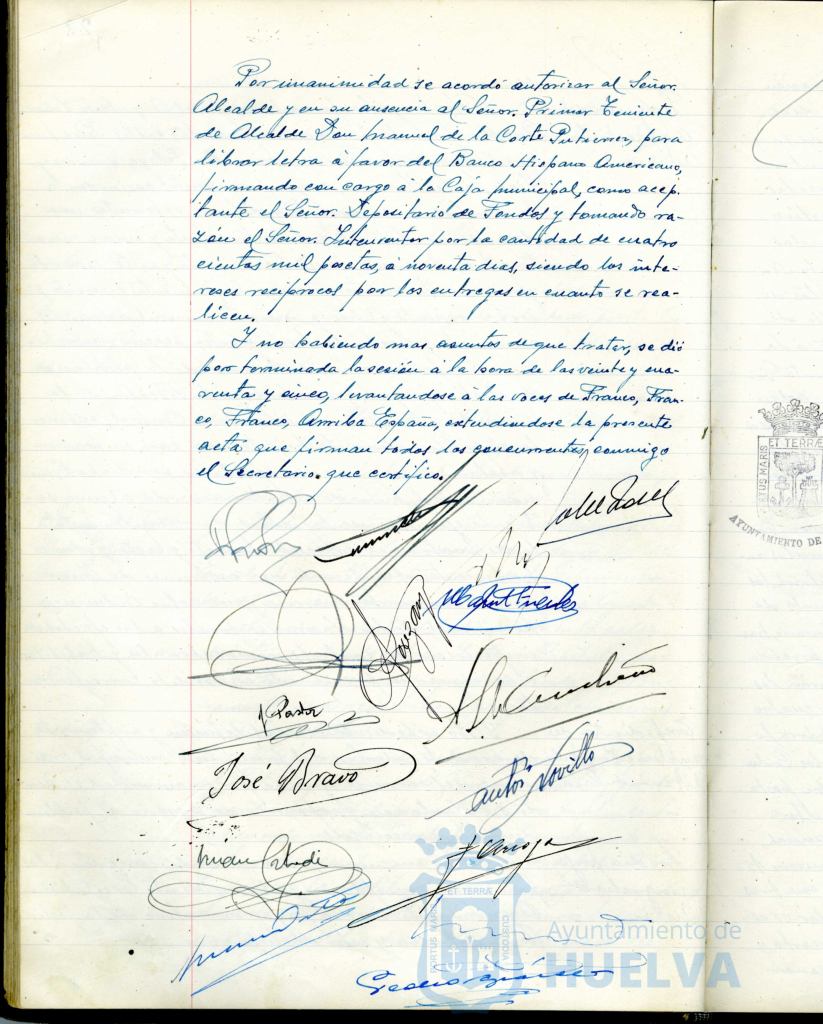 Por unanimidad se acordó autorizar al Señor.
Alcalde y en su ausencia al Señor. Primer Teniente
de Alcalde Don Manuel de la Corte Gutierrez, para
librar letra á favor del Banco Hispano Americano,
firmando con cargo á la Caja municipal, como acep-
tante el Señor. Depositario de Fondos y tomando ra-
zón el Señor. Interventor por la cantidad de cuatro
cientas mil pesetas, á noventa dias, siendo los inte-
reses reciprocos por las entregas en cuanto se rea-
licen.
Y no habiendo mas asuntos de que tratar, se dió
por terminada la sesión á la hora de las veinte y cua-
renta y cinco, levantandose á las voces de Franco, Fran-
co, Franco, Arriba España, extendiendose la presente
acta que firman todos los concurrentes, conmigo
el Secretario. que certifico.
J Pastor
José Bravo
Antº Novillo
ET TERRÆ
AYUNTAMIENTO DE
ET TERRÆ
PORTUS MARIS
CUSTODIA
Ayuntamiento de
HUELVA